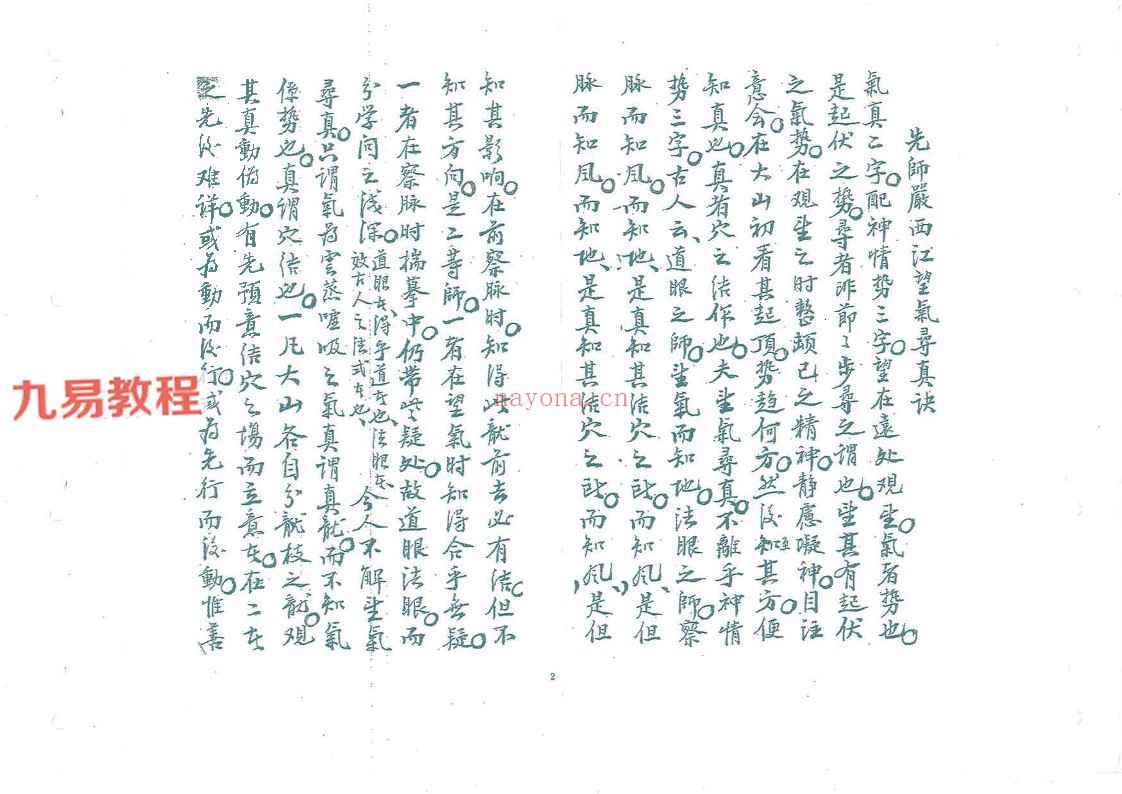 先師嚴西江望氣尋真訣
氣真二字。配神情势三字。望在遠处观望。氣者势也。
是起伏之势。尋者昨節ミ步尋之谓也。望其有起伏
之氣势。在观望之时。整頓己之精神。静慮凝神。目注
意会。在大山初看其起顶。势趋何方。然後知其方。便
知真也。真者穴之结作也。夫望氣尋真。不離乎神情
势三字。古人云、道眼之師。望氣而知地。法眼之師。察
脉而知風。而知地、是真知其结穴之所。而知風、是但
脉而知風。而知地、是真知其结穴之所。而知風、是但
知其影响。在前察脉时。知得此龍前去必有结。但不
知其方向。是二等師。一者在望氣时知得合乎無疑。
一者在察脉时揣摹中。仍带些疑处。故道眼法眼。而
分学问之浅深。道眼在得乎道在也、法眼在效古人之法或在也、今人不解望氣
尋真。只谓氣为雲蒸嘘吸之氣。真谓真龍。而不知氣
係势也。真谓穴结也。一凡大山各自分龍枝之龍。观
其真動偽動。有先預意结穴之場而立意在。在二在
之先後难详。或为動而後行。或为先行而後動。惟善
2
九易教程
nayona.cn